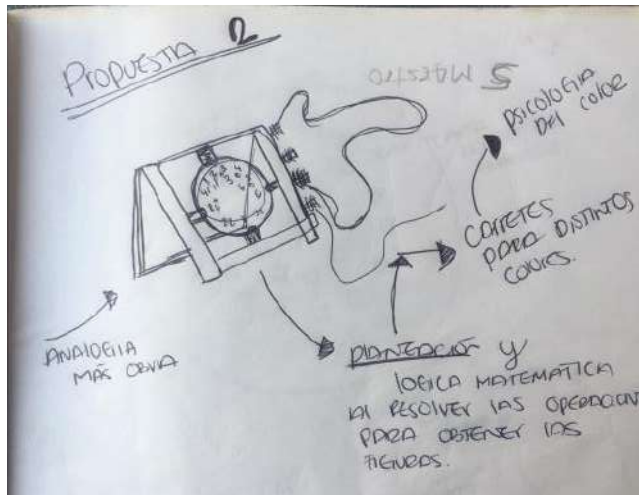 PROPUESTA 2
5 MAESTRO
PSICOLOGIA
DEL COLOR
CARRETES
PARA DISTINTOS
COLORES.
ANALOGIA
MÁS OBVIA
PLANEACIÓN Y
LOGICA MATEMATICA
AL RESOLVER LAS OPERACION
PARA OBTENER LAS
FIGURAS.